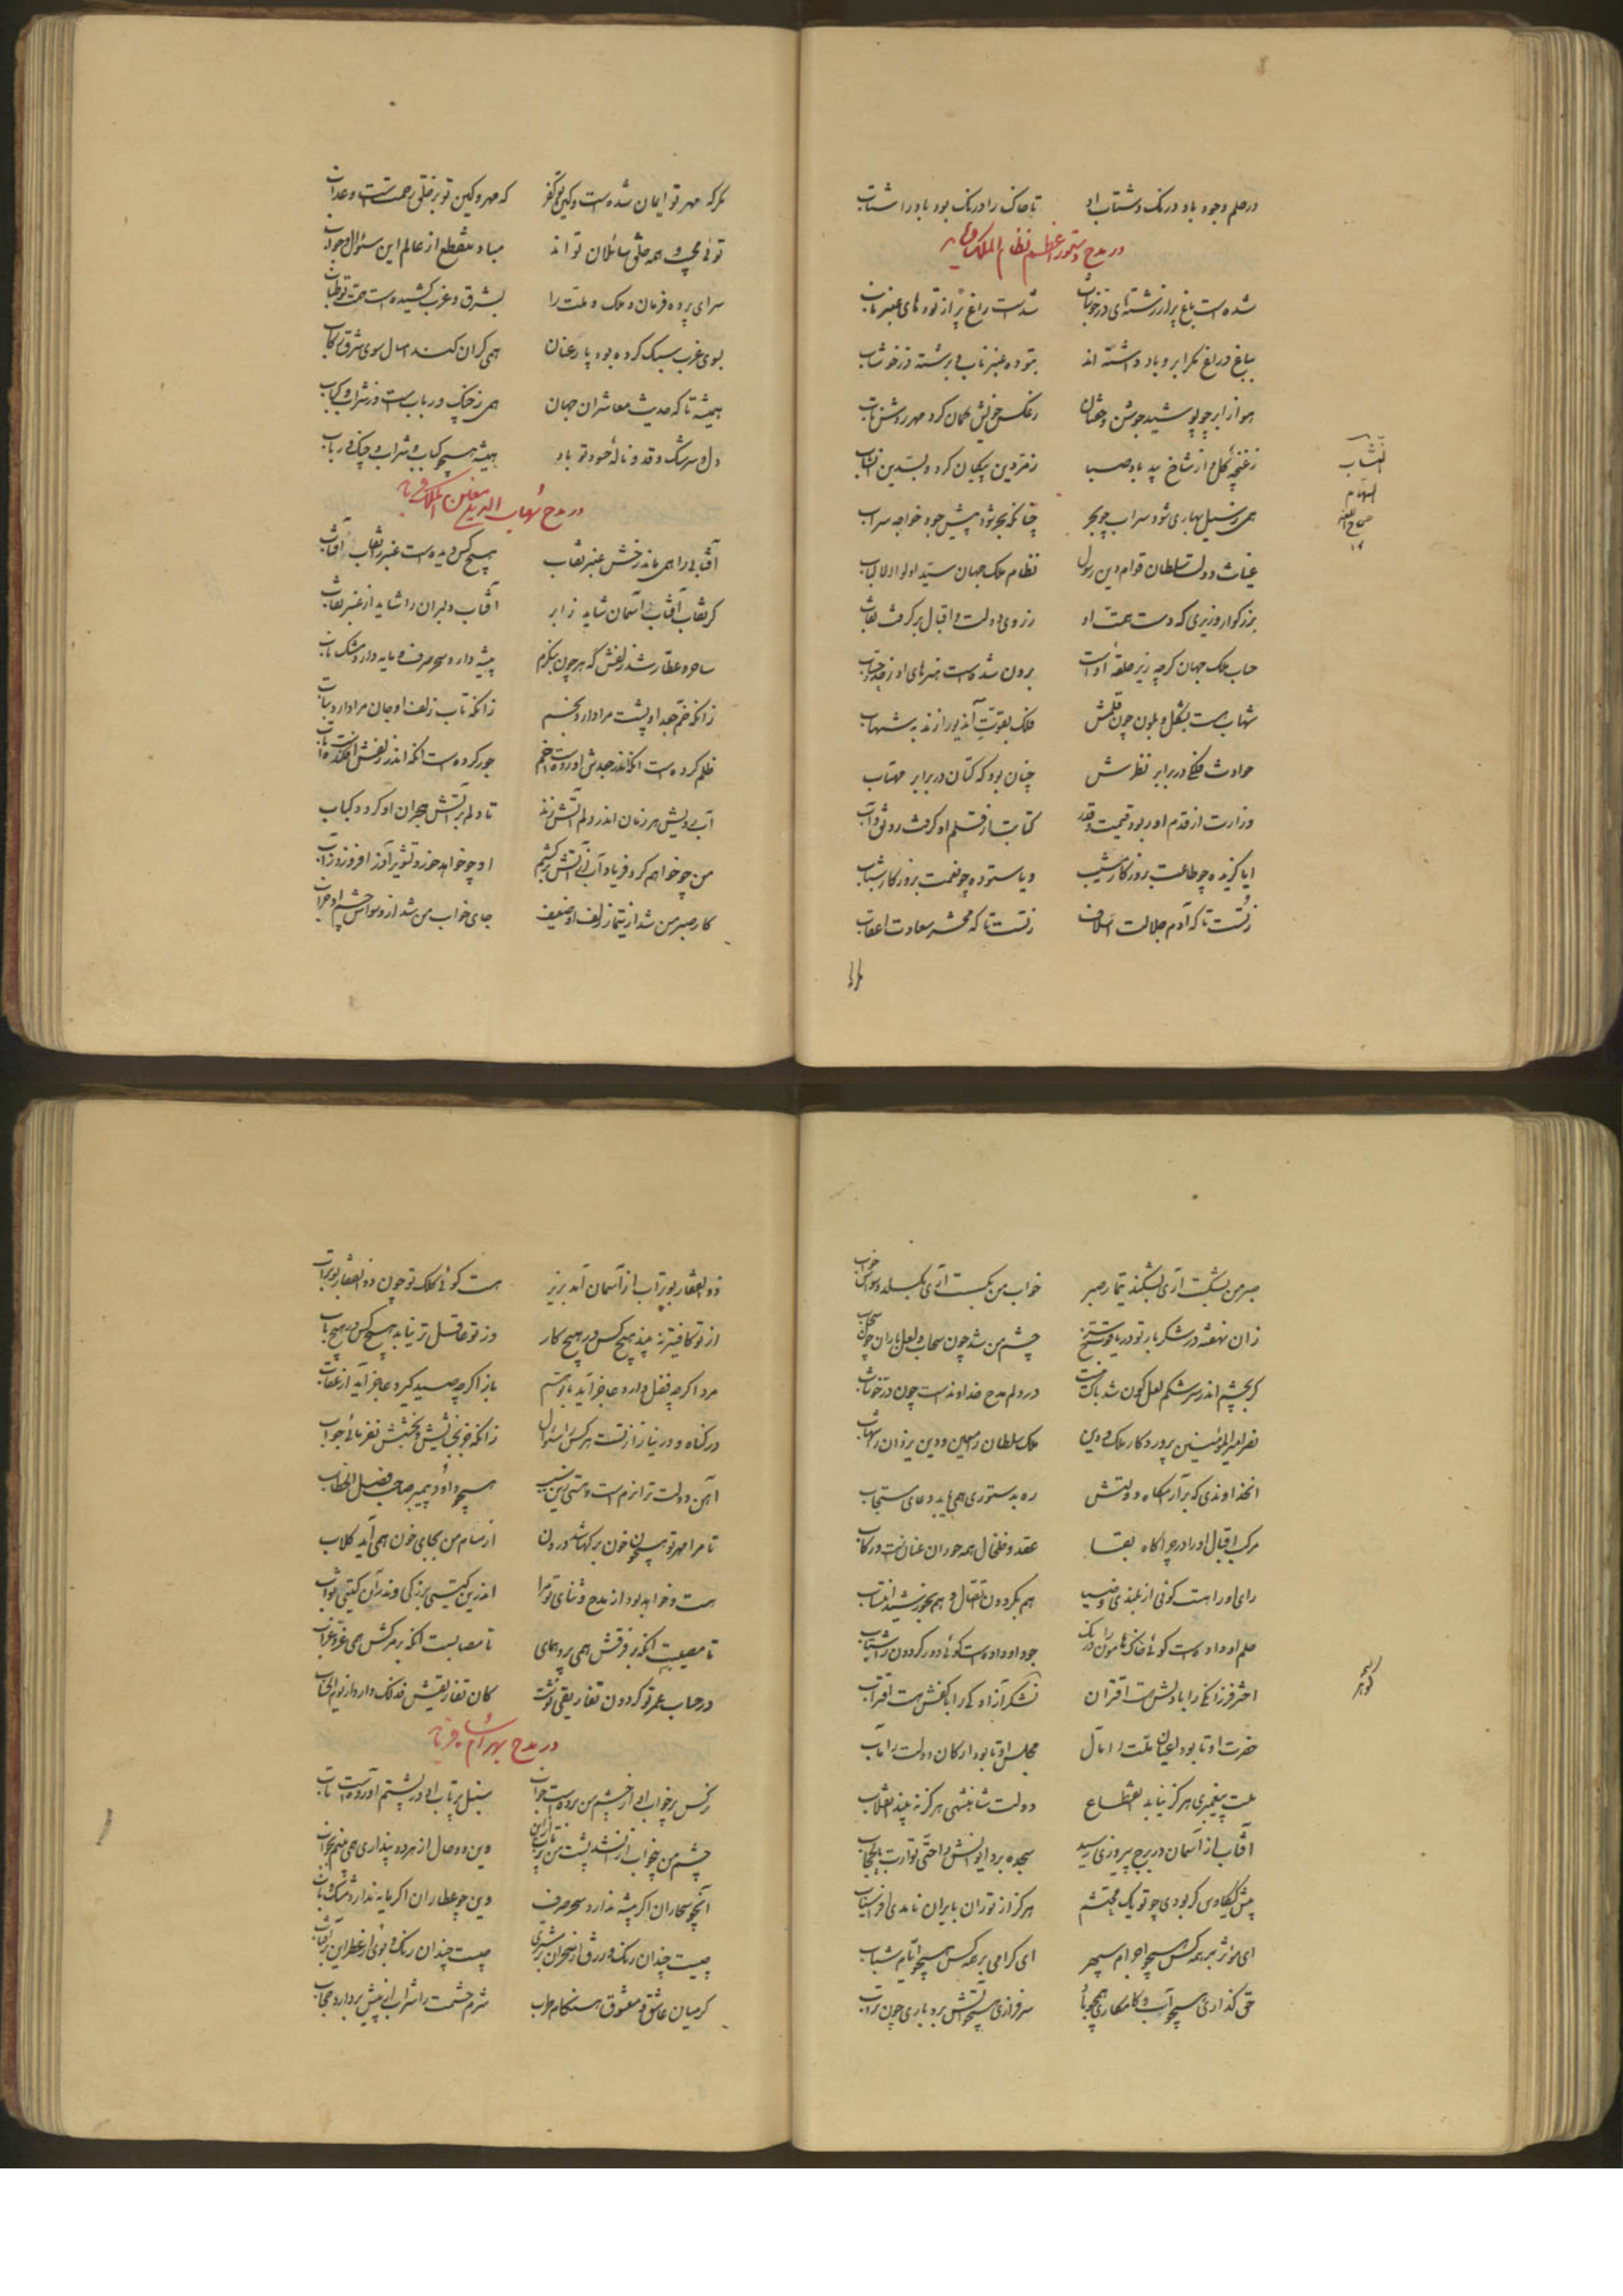 در حلم وجود باد درنک و شتاب او تا خاک را درنک بود باد را شتاب
در مدح دستور اعظم نظام الملک
شده است باغ پر از رشته‌ای در خوشاب شدست راغ پر از توده های عنبر ناب
بباغ و راغ مکر ابر و باد داشته اند بتوده عنبر ناب و برشته در خوشاب
هوا ز ابر چو پوشید جوشن و خفتان ز عکس خویش کمان کرد مهر روشن تاب
ز غنچه کل و از شاخ بید باد صبا زمردین پیکان کرد و بسدین نشاب
همی ز سیل بهاری شود سراب چو بحر چنانکه بحر شود پیش جود خواجه سراب
غیاث دولت سلطان قوام دین رسول نظام ملک جهان سید اولوالالباب
بزرکوار وزیری که دست همت او ز روی دولت و اقبال برکرفت نقاب
حساب ملک جهان کرچه زیر حلقه اوست برون شده است هنرهای او ز حد حساب
شهاب هست بشکل و بلون چون قلمش فلک بقوت آن دیو را زند بشهاب
حوادث فلکی در برابر نظرش چنان بود که کتان در برابر مهتاب
وزارت از قدم او ربود قیمت و قدر کتابت از قلم او کرفت رونق و آب
ایا کزیده چو طاعت بروزکار مشیب ویا ستوده چو نعمت بروزکار شباب
ز تست تا که آدم جلالت اسلاف ز تست تا که محشر سعادت اعقاب
مکر که مهر تو ایمان شده است و کین تو کفر که مهر و کین تو بر خلق رحمتست و عذاب
توئی مجیب و همه خلق سائلان تواند مباد منقطع از عالم این سئوال و جواب
سرای پرده فرمان و ملک و ملت را بشرق و غرب کشیده است همت تو طناب
بسوی غرب سبک کرده بود پار عنان همی کران کند امسال سوی شرق رکاب
همیشه تا که حدیث معاشران جهان همی ز چنک و رباب است و ز شراب و کباب
دل و سرشک و قد و ناله حسود تو باد همیشه همچو کباب و شراب و چنک و رباب
در مدح شهاب الدین معین الملک
آفتابی را همی ماند رخش عنبر نقاب هیچ کس دیده است عنبر را نقاب آفتاب
کر نقاب آفتاب آسمان شاید ز ابر آفتاب دلبران را شاید از عنبر نقاب
ساحر و عطار شد زلفش که هر چون بنکرم پیشه دارد سحر صرف و مایه دارد مشک ناب
زانکه خم جعد او پشت مرا دارد بخم زانکه تاب زلف او جان مرا دارد بتاب
ظلم کرده است انکه اندر جعدش آورده است خم جور کرده است انکه اندر زلفش افکنده است تاب
آب رویش هر زمان اندر دلم آتش زند تا دلم بر آتش هجران او کردد کباب
من چو خواهم کرد فریاد آب از آتش برکشم او چو خواهد خورد تشویر آذر افروزد ز آب
کار صبر من شد از تیمار زلف او ضعیف جای خواب من شد از وسواس چشم او خراب
صبر من بشکست آری بشکند تیمار صبر خواب من بکسست آری بکسلد وسواس خواب
زان نهفته در شکر بار تو در یاقوت سرخ چشم من شد چون سحاب و لعل باران چون سحاب
کر بچشم اندر سرشکم لعل کون شد باک نیست در دلم مدح خداوندست چون در خوشاب
نصر امیرالمؤمنین پروردکار ملک و دین ملک سلطان را معین و دین یزدان را شهاب
انخداوندی که بر آرامکاه دولتش ره بدستوری همی یابد دعای مستجاب
مرکب اقبال او را در چراکاه بقا عقد و خلخال همه حوران عنانست و رکاب
رای او را هست کوئی از بلندی و ضیا هم بکردون اتصال و هم بخورشید انتساب
حلم او داده است کوئی خاک هامون را درنک جود او داده است کوئی دور کردون را شتاب
اختر فرزانکی را با دلش هست اقتران لشکر آزادکی را با کفش هست اقتراب
حضرت او تا بود اعیان ملت را مآل مجلس او تا بود ارکان دولت را مآب
ملت پیغمبری هرکز نیابد انقطاع دولت شاهنشهی هرکز نه بیند انقلاب
آفتاب از آسمان در برج پیروزی رسید سجده برد او را حتی توارت بالحجاب
پیش کیکاوس کر بودی چو تو یک محتشم هرکز از توران بایران نامدی افراسیاب
ای مؤثر بر همه کس همچو اجرام سپهر ای کرامی بر همه کس همچو ایام شباب
حق کذاری همچو آب و کامکاری همچو باد سرفرازی همچو آتش بردباری چون تراب
ذوالفقار بوتراب از آسمان آمد بزیر هست کوئی کلک تو چون ذوالفقار بوتراب
از تو کافی‌تر نه بیند هیچ کس در هیچ کار وز تو عاقل تر نیابد هیچ کس در هیچ باب
مرد اکرچه فضل دارد عاجز آید با تو هم باز اکرچه صید کیرد عاجز آید از عقاب
در کناه و در نیاز از تست هر کس را سئوال زانکه جز بخشایش و بخشش نفرمائی جواب
آهن دولت ترا نرم است و هستی زین نسب همچو داود پیمبر صاحب فصل الخطاب
تا مرا مهر تو همچون خون برکها شد درون از مسام من بجای خون همی آید کلاب
هست و خواهد بود از مدح و ثنای تو مرا اندرین کیتی بزرکی و اندر آن کیتی ثواب
تا مصیبست انکه بر فرقش همی پرد همای تا مصابست انکه بر مرکش همی غرد غراب
در حساب عمر تو کردون تفاریقی نوشت کان تفاریقش فذلک دارد از یوم الحساب
در مدح بهرامشاه
نرکس پرخواب او از چشم من برده است خواب سنبل پرتاب او در پشتم آورده است تاب
چشم من بی خواب از آن شد پشت من پرتاب ازین وین دو حال از هر دو پنداری همی بینم بخواب
آن چو سحاران اکر پیشه ندارد سحر صرف وین چو عطاران اکر مایه ندارد مشک ناب
چیست چندان رنک و زرق از سحر آن بر مشتری چیست چندان رنک و بوی از عطر این بر آفتاب
کر میان عاشق و معشوق هنکام طرب شرم حشمت را شراب از پیش بردارد حجاب